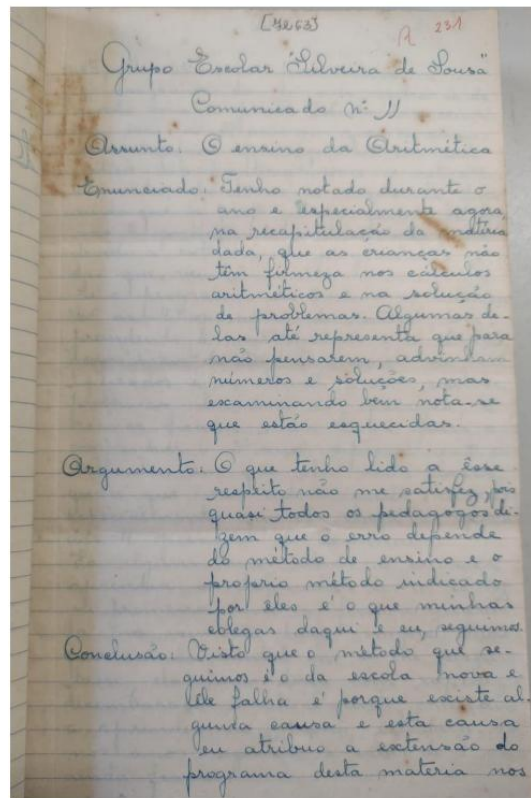 [7263]
R 231
Grupo Escolar "Silveira de Sousa"
Comunicado nº 11
Assunto: O ensino da Aritmética
Enunciado: Tenho notado durante o
ano e especialmente agora,
na recapitulação da matéria
dada, que as crianças não
têm firmeza nos cálculos
aritméticos e na solução
de problemas. Algumas de-
las até representa que para
não pensarem, advinham
números e soluções, mas
examinando bem nota-se
que estão esquecidas.
Argumento: O que tenho lido a êsse
respeito não me satisfez, pois
quasi todos os pedagogos di-
zem que o erro depende
do método de ensino e o
proprio método indicado
por eles é o que minhas
colegas daqui e eu, seguimos.
Conclusão: Visto que o método que se-
guimos é o da escola nova e
êle falha é porque existe al-
guma causa e esta causa
eu atribuo a extensão do
programa desta materia nos